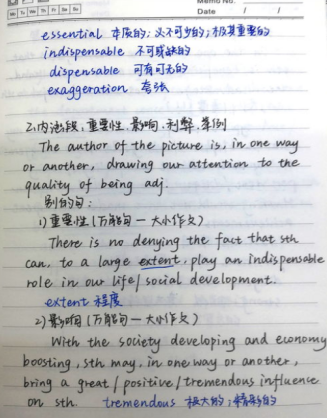 Memo No.
Mo Tu We Th Fr Sa Su
Date / /
essential 本质的; 必不可少的; 极其重要的
indispensable 不可或缺的
dispensable 可有可无的
exaggeration 夸张
2.内涵段:重要性.影响.利弊.举例
The author of the picture is, in one way
or another, drawing our attention to the
quality of being adj.
别的句:
1)重要性(万能句-大小作文)
There is no denying the fact that sth
can, to a large extent, play an indispensable
role in our life/social development.
extent 程度
2)影响(万能句-大小作文)
With the society developing and economy
boosting, sth may, in one way or another,
bring a great/positive/tremendous influence
on sth. tremendous 极大的; 精彩的